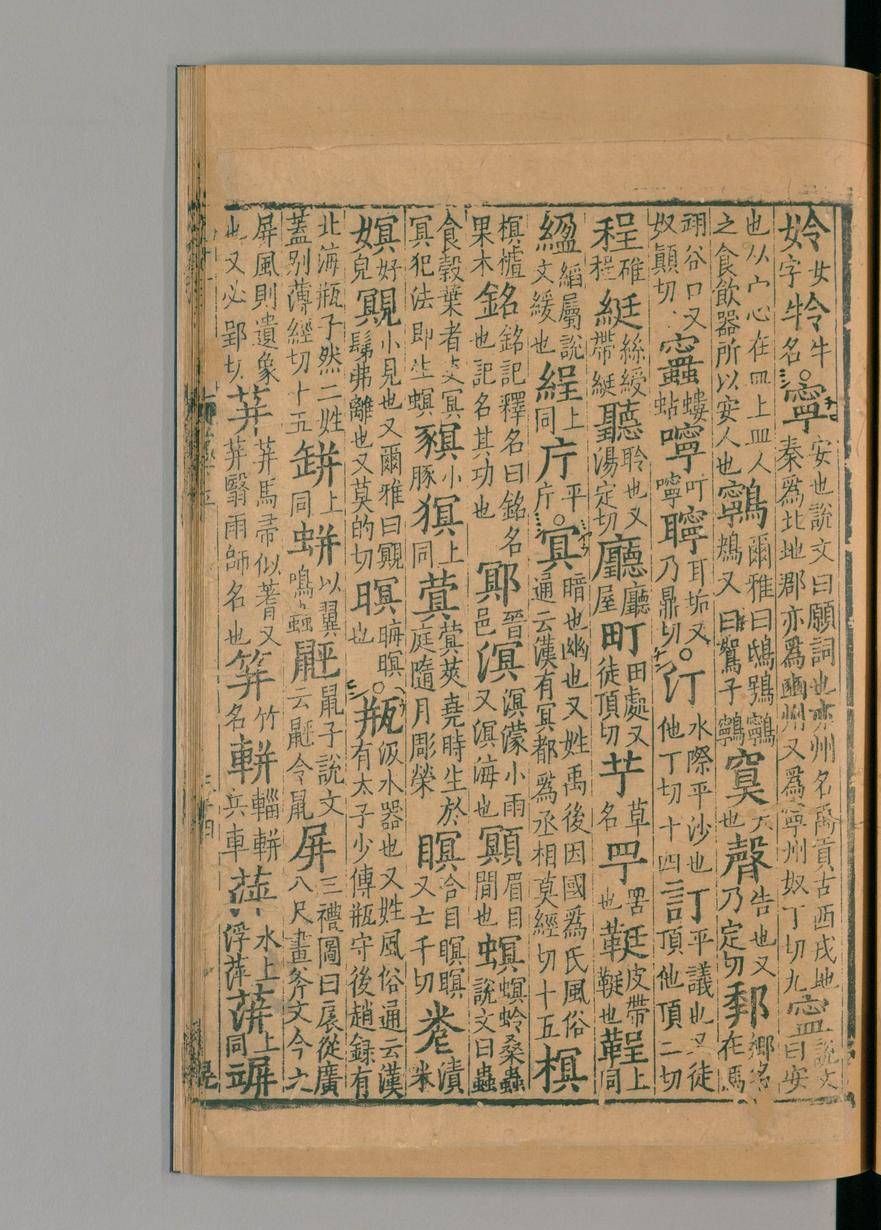 姈女字㸳牛名。寧安也說文曰願詞也亦州名禹貢古西戎地秦爲北地郡亦爲豳州又爲寧州奴丁切九寍說文曰安
也从宀心在皿上皿人之食飲器所以安人也鸋爾雅曰鴟鴞鸋鴂又曰鴽子鸋天也告也又乃定切鄉名在馮
翊谷口又奴顛切螻蛄嚀叮嚀聹耳垢又乃鼎切。汀水際平沙也他丁切十四訂平議也又徒頂他頂二切
桯碓桯綎絲綬帶綎聽聆也又湯定切廳廳屋町田處又徒頂切芓草名罟也鞓皮帶鞓也鞓上同
緩也綎上同庁平庁。冥暗也幽也又姓禹後因國爲氏風俗通云漢有冥都爲丞相莫經切十五榠
榠樝果木銘銘記釋名曰銘名也記名其功也鄍晉邑溟溟濛小雨又溟海也眉目間也螟螟蛉桑蟲說文曰蟲
食穀葉者吏冥冥犯法即生螟小豚猽上同蓂蓂莢堯時生於庭隨月彫榮瞑合目瞑瞑又亡千切漬米
嫇好女皃覭小見也又爾雅曰覭髳茀離也又莫的切暝晦暝也。瓶汲水器也又姓風俗通云漢有太子少傅瓶守後趙錄有
北海瓶子然二姓蓋別薄經切十五缾上同蛢以翼鳴蟲鼠子說文云令鼠屏三禮圖曰扆從廣八尺畫斧文今之
屏風則遺象也又必郢切荓荓馬帚似蓍又荓翳雨師名也箳竹名軿輜軿兵車萍水上浮萍蓱上同竮